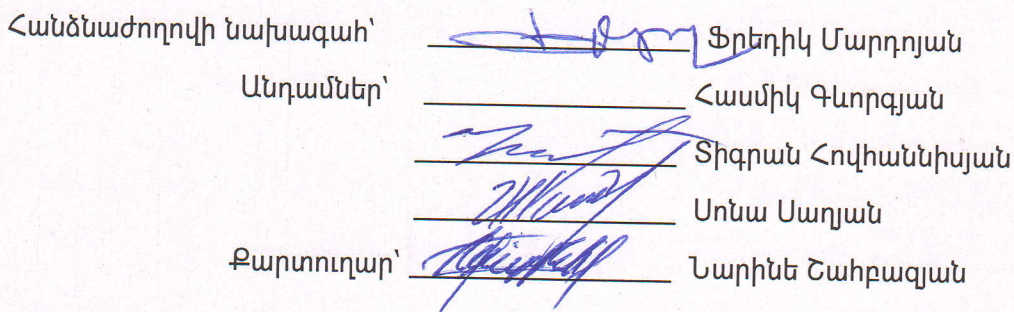 Հանձնաժողովի նախագահ՝ Ֆրեդիկ Մարդոյան
Անդամներ՝ Հասմիկ Գևորգյան
Տիգրան Հովհաննիսյան
Սոնա Սաղյան
Քարտուղար՝ Նարինե Շահբազյան